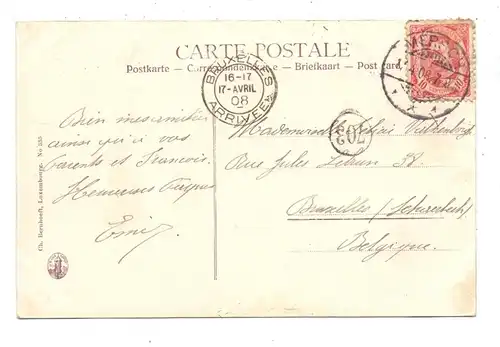 CARTE POSTALE
Postkarte — Correspondenzkarte — Briefkaart — Post card
BRUXELLES
16-17
17-AVRIL
08
ARRIVÉE
203
Bien mes amitiés
ainsi qu'à vos
parents et François.
Heureuses Pâques
Mademoiselle
Rue Jules Lebrun 38.
Bruxelles / Schaerbeek /
Belgique.
Ch. Bernhoeft, Luxembourg. No 235
10